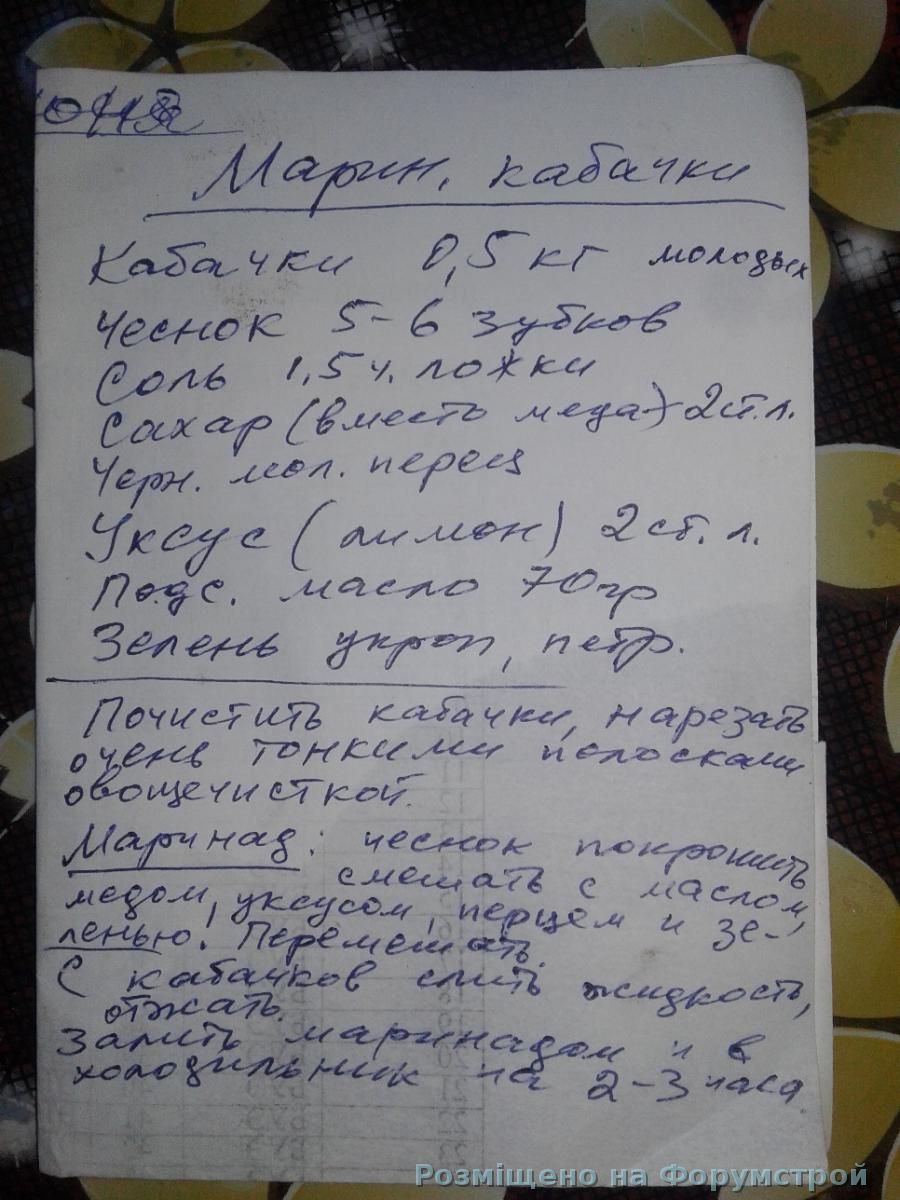 юня
Марин. кабачки
Кабачки 0,5 кг молодых
Чеснок 5-6 зубков
Соль 1,5 ч. ложки
Сахар (вместо меда) - 2 ст. л.
Черн. мол. перец
Уксус (лимон) 2 ст. л.
Подс. масло 70 гр
Зелень укроп, петр.
Почистить кабачки, нарезать
очень тонкими полосками
овощечисткой.
Маринад: чеснок покрошить
смешать с маслом,
медом, уксусом, перцем и зе-
ленью. Перемешать.
С кабачков слить жидкость,
отжать.
Залить маринадом и в
холодильник на 2-3 часа
Розміщено на Форумстрой